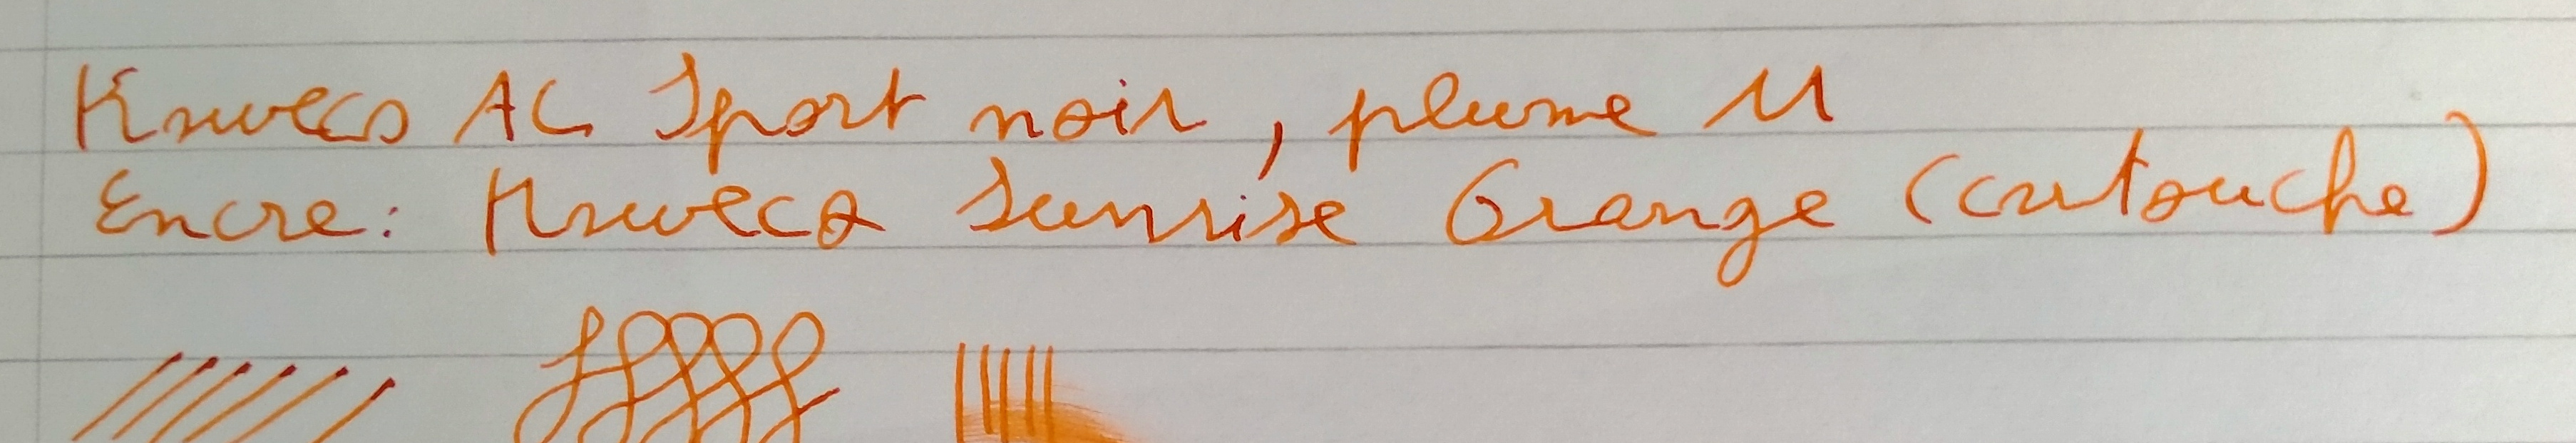 Kaweco AC Sport noir, plume M
Encre: Kaweco Sunrise Orange (cartouche)